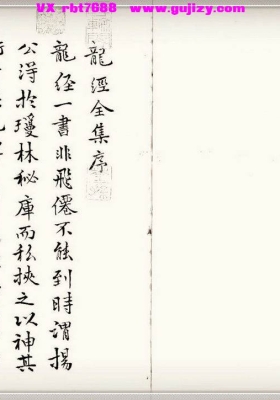 VX rbt7688 www.gujizy.com
龍經全集序
龍经一書非飛僊不能到時謂揚
公得於瓊林秘庫而私挾之以神其